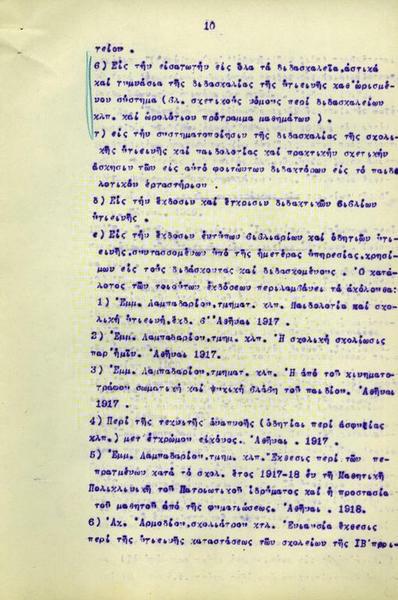 10
τείου .
β) Εἰς τήν εἰσαγωγήν εἰς ὅλα τά διδασκαλεῖα, ἀστικά
καί γυμνάσια τῆς διδασκαλίας τῆς ὑγιεινῆς καθ'ὡρισμέ-
νον σύστημα (βλ. σχετικούς νόμους περί διδασκαλείων
κλπ. καί ὡρολόγιον πρόγραμμα μαθημάτων ).
γ) εἰς τήν συστηματοποίησιν τῆς διδασκαλίας τῆς σχολι-
κῆς ὑγιεινῆς καί παιδολογίας καί πρακτικήν σχετικήν
ἄσκησιν τῶν εἰς αὐτό φοιτώντων διδακτόρων εἰς τό παιδο
λογικόν ἐργαστήριον .
δ) Εἰς τήν ἔκδοσιν καί ἔγκρισιν διδακτικῶν βιβλίων
ὑγιεινῆς .
ε) Εἰς τήν ἔκδοσιν ἐντύπων βιβλιαρίων καί ὁδηγιῶν ὑγι-
εινῆς, συντασσομένων ὑπό τῆς ἡμετέρας ὑπηρεσίας, χρησί-
μων εἰς τούς διδάσκοντας καί διδασκομένους . Ὁ κατά-
λογος τῶν τοιούτων ἐκδόσεων περιλαμβάνει τά ἀκόλουθα:
1) Ἐμμ. Λαμπαδαρίου, τμηματ. κλπ. Παιδολογία καί σχο-
λική ὑγιεινή, ἔκδ. β' Ἀθῆναι 1917 .
2) Ἐμμ. Λαμπαδαρίου, τμημ. κλπ. Ἡ σχολική σκολίωσις
παρ'ἡμῖν. Ἀθῆναι 1917.
3) Ἐμμ. Λαμπαδαρίου, τμηματ. κλπ. Ἡ ἀπό τοῦ κινηματο-
γράφου σωματική καί ψυχική βλάβη τοῦ παιδίου. Ἀθῆναι
1917 .
4) Περί τῆς τεχνητῆς ἀναπνοῆς (ὁδηγίαι περί ἀσφυξίας
κλπ.) μετ'ἐγχρώμου εἰκόνος. Ἀθῆναι . 1917 .
5) Ἐμμ. Λαμπαδαρίου, τμημ. κλπ. Ἔκθεσις περί τῶν πε-
πραγμένων κατά τό σχολ. ἔτος 1917-18 ἐν τῇ Μαθητικῇ
Πολυκλινικῇ τοῦ Πατριωτικοῦ ἱδρύματος καί ἡ προστασία
τοῦ μαθητοῦ ἀπό τῆς φυματιώσεως. Ἀθῆναι . 1918.
6) Ἀχ. Ἁρμοδίου, σχολιάτρου κτλ. Ἐνιαυσία ἔκθεσις
περί τῆς ὑγιεινῆς καταστάσεως τῶν σχολείων τῆς ΙΒ'περι-